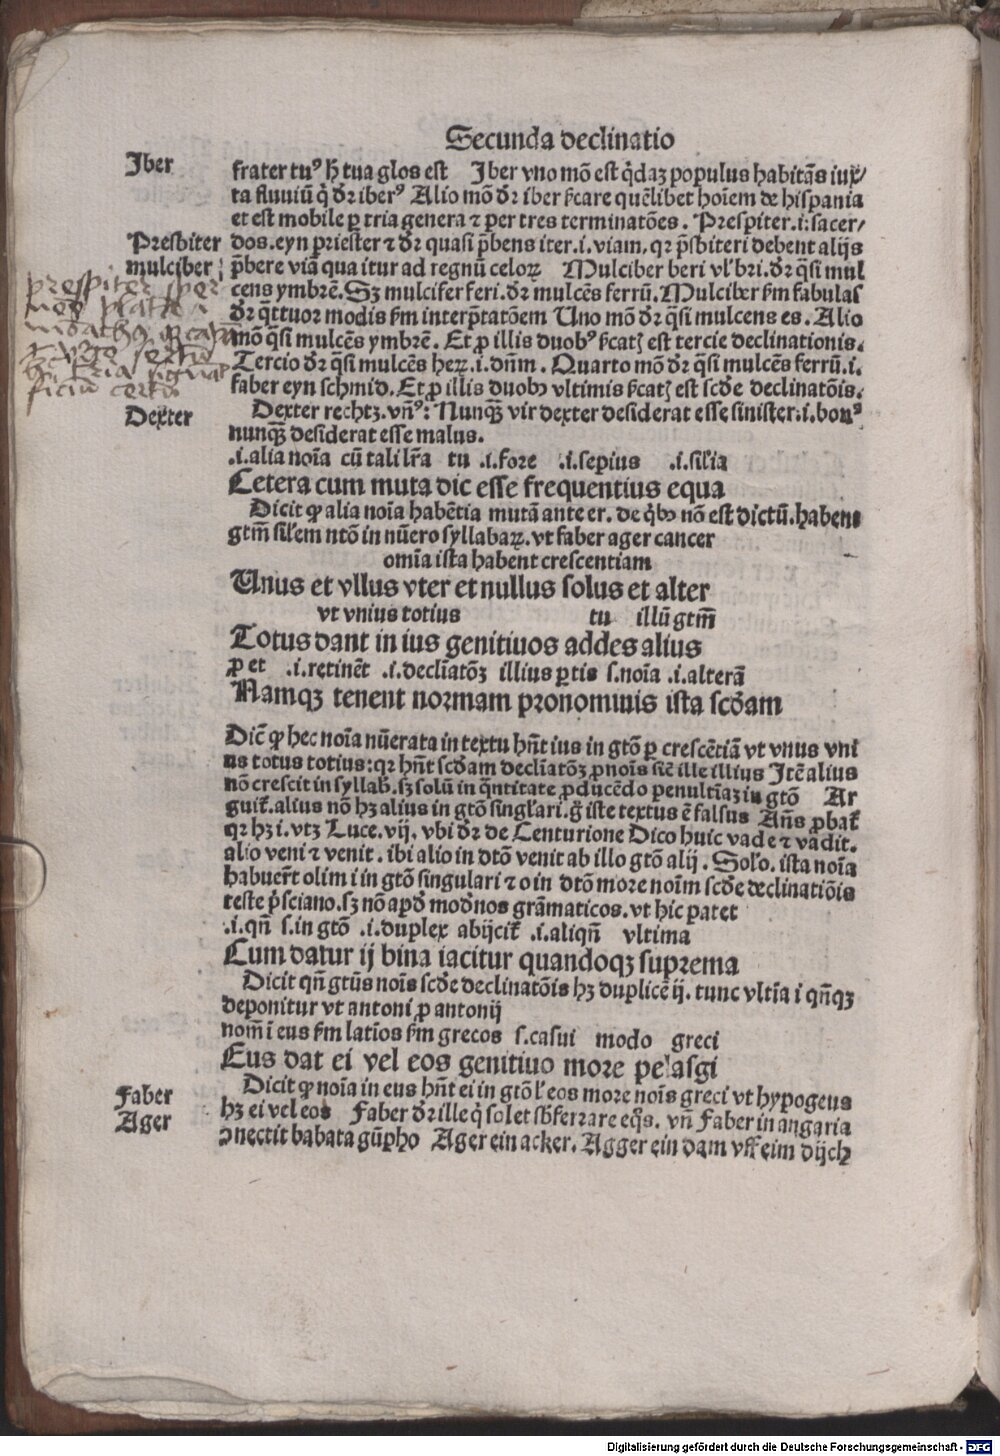 Secunda declinatio
Iber
frater tuꝰ hͥ tua glos est Iber vno mō est q̇daꝫ populus habitās iux/
ta fluuiū q̇ dr̄ iberꝰ Alio mō dr̄ iber ẜcare quēlibet hoīem de hispania
et est mobile per tria genera ⁊ per tres terminatōes. Prespiter .i: sacer/
Presbiter
dos. eyn priester ⁊ dr̄ quasi p̄bens iter .i. viam. qr p̄sbiteri debent alijs
mulciber
p̄bere viā qua itur ad regnū celoꝝ Mulciber beri vl̓ bri. dr̄ q̄si mul
cens ymbrē. Sꝫ mulcifer feri. dr̄ mulcēs ferrū. Mulciber ẜm fabulas
dr̄ q̄ttuor modis ẜm interp̄tatōem Uno mō dr̄ q̄si mulcens es. Alio
mō q̄si mulcēs ymbrē. Et ꝓ illis duobꝰ ẜcatꝭ est tercie declinationis.
Tercio dr̄ q̄si mulcēs heꝝ .i. dn̄m. Quarto mō dr̄ q̄si mulcēs ferrū .i.
faber eyn schmid. Et ꝓ illis duobꝫ vltimis ẜcatꝭ est scd̓e declinatōis.
prespiter
Dexter
Dexter rechtꝫ. vn̄ꝰ: Nunqꝫ vir dexter desiderat esse sinister: .i. bonꝰ
nunqꝫ desiderat esse malus.
.i. alia noīa cū tali lr̄a tu .i. fore .i. sepius .i. sil̓ia
Cetera cum muta dic esse frequentius equa
Dicit ꝙ alia noīa habētia mutā ante er. de q̇bꝫ nō est dictū. habens
gtm̄ sil̓em ntō in nūero syllabaꝝ. vt faber ager cancer
omīa ista habent crescentiam
Unus et vllus vter et nullus solus et alter
vt vnius totius tu illū gtm̄
Totus dant in ius genitiuos addes alius
ꝓ et .i. retinēt .i. declīatōꝫ illius ꝑtis s. noīa .i. alterā
Namqꝫ tenent normam pronominis ista scd̓am
Dic̄ ꝙ hec noīa nūerata in textu hn̄t ius in gtō ꝑ crescētiā vt vnus vni
us totus totius: qr hn̄t scd̓am declīatōꝫ ꝓnoīs sic̄ ille illius Itē alius
nō crescit in syllab̓. sꝫ solū in q̄ntitate ꝓducēdo penultīaꝫ in gtō Ar
guit̓. alius nō hꝫ alius in gtō singl̓ari. g̊ iste textus ē falsus An̄s ꝓbat̓
qr hꝫ i. vtꝫ Luce. vij. vbi dr̄ de Centurione Dico huic vade ⁊ vadit.
alio veni ⁊ venit. ibi alio in dtō venit ab illo gtō alij. Sol̓o. ista noīa
habuerūt olim i in gtō singulari ⁊ o in dtō more noīm scd̓e declinatiōis
teste p̓sciano. sꝫ nō apd̓ mod̓nos grāmaticos. vt hic patet
.i. qn̄ s. in gtō .i. duplex abijcit̓ .i. aliqn̄ vltima
Cum datur ij bina iacitur quandoqꝫ suprema
Dicit qn̄ gtūs noīs scd̓e declinatōis hꝫ duplicē ij. tunc vltīa i qn̄qꝫ
deponitur vt antoni ꝓ antonij
nom̄ i eus ẜm latīos ẜm grecos s. casui modo greci
Eus dat ei vel eos genitiuo more pelasgi
Dicit ꝙ noīa in eus hn̄t ei in gtō l̓ eos more noīs greci vt hypogeus
Faber
hꝫ ei vel eos Faber dr̄ ille q̇ solet sb̓ferrare eq̊s. vn̄ Faber in angaria
Ager
ↄnectit babata gūpho Ager ein acker. Agger ein dam vff eim dijch
Digitalisierung gefördert durch die Deutsche Forschungsgemeinschaft - DFG